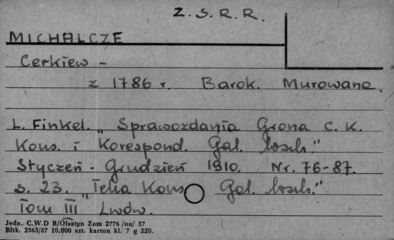 Z. S. R. R.
MICHALCZE
Cerkiew -
z 1786 r. Barok. Murowana.
L. Finkel. „Sprawozdania Grona C. K.
Kons. i Korespond. Gal. Wsch."
Styczeń - Grudzień 1910. Nr. 76-87.
s. 23. Teka Kons Gal. Wsch."
Tom III Lwów.
Jedn. C.W.D B/Olsztyn Zam 2776 /on/ 57
Bltk. 2563/57 10.000 szt. karton kl. 7 g 220.